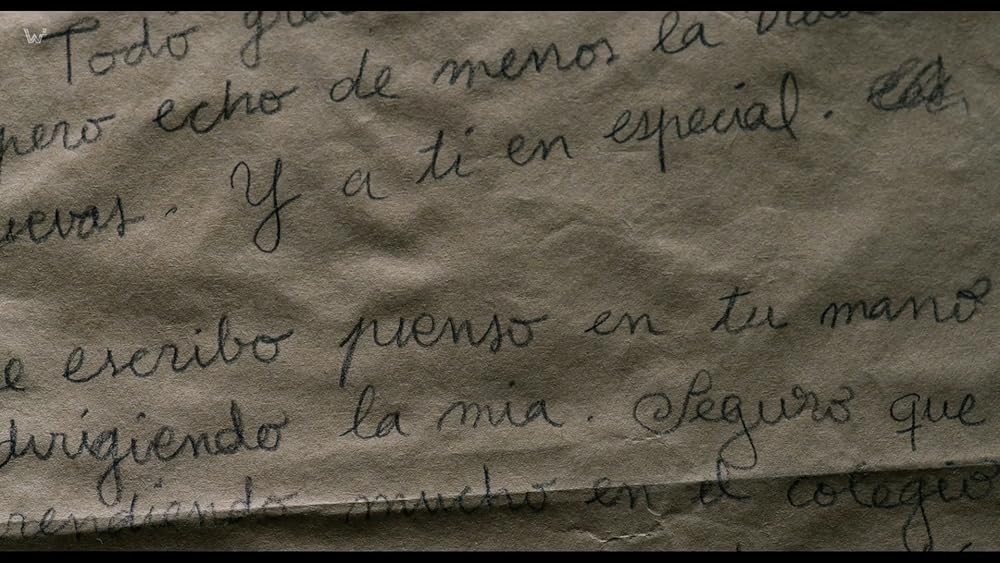 Todo
pero echo de menos la
Y a ti en especial.
escribo pienso en tu mano
dirigiendo la mia. Seguro que
mucho en el colegio